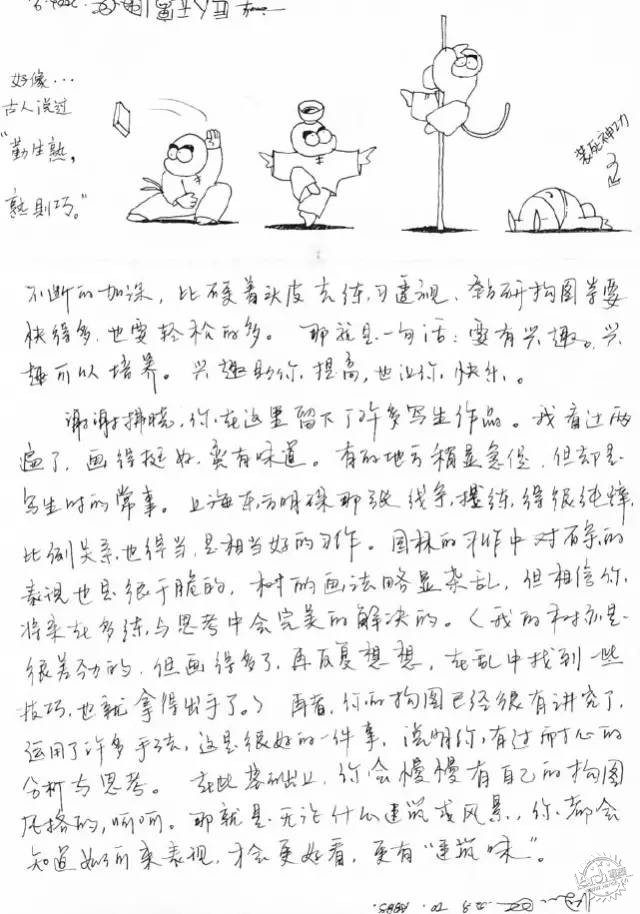 好像...
古人说过
"勤生熟，
熟则巧。"
装死神功
不断的加深，比硬着头皮去练习透视、钻研构图等要
快得多，也要轻松的多。那就是一句话：要有兴趣。兴
趣可以培养。兴趣助你提高，也让你快乐。
谢谢拂晓，你在这里留下了许多写生作品。我看过两
遍了，画得挺好，蛮有味道。有的地方稍显急促，但却是
写生时的常事。上海东方明珠那张线条提练得很纯粹，
比例关系也得当，是相当好的习作。园林的习作中对石条的
表现也是很干脆的，树的画法略显杂乱，但相信你
将来在多练与思考中会完美的解决的。（我的树亦是
很差劲的，但画得多了，再反复想想，在乱中找到一些
技巧，也就拿得出手了。）再者，你的构图已经很有讲究了，
运用了许多手法，这是很好的一件事，说明你有过耐心的
分析与思考。在此基础上，你会慢慢有自己的构图
风格的，呵呵。那就是无论什么建筑或风景，你都会
知道如何来表现，才会更好看，更有"建筑味"。